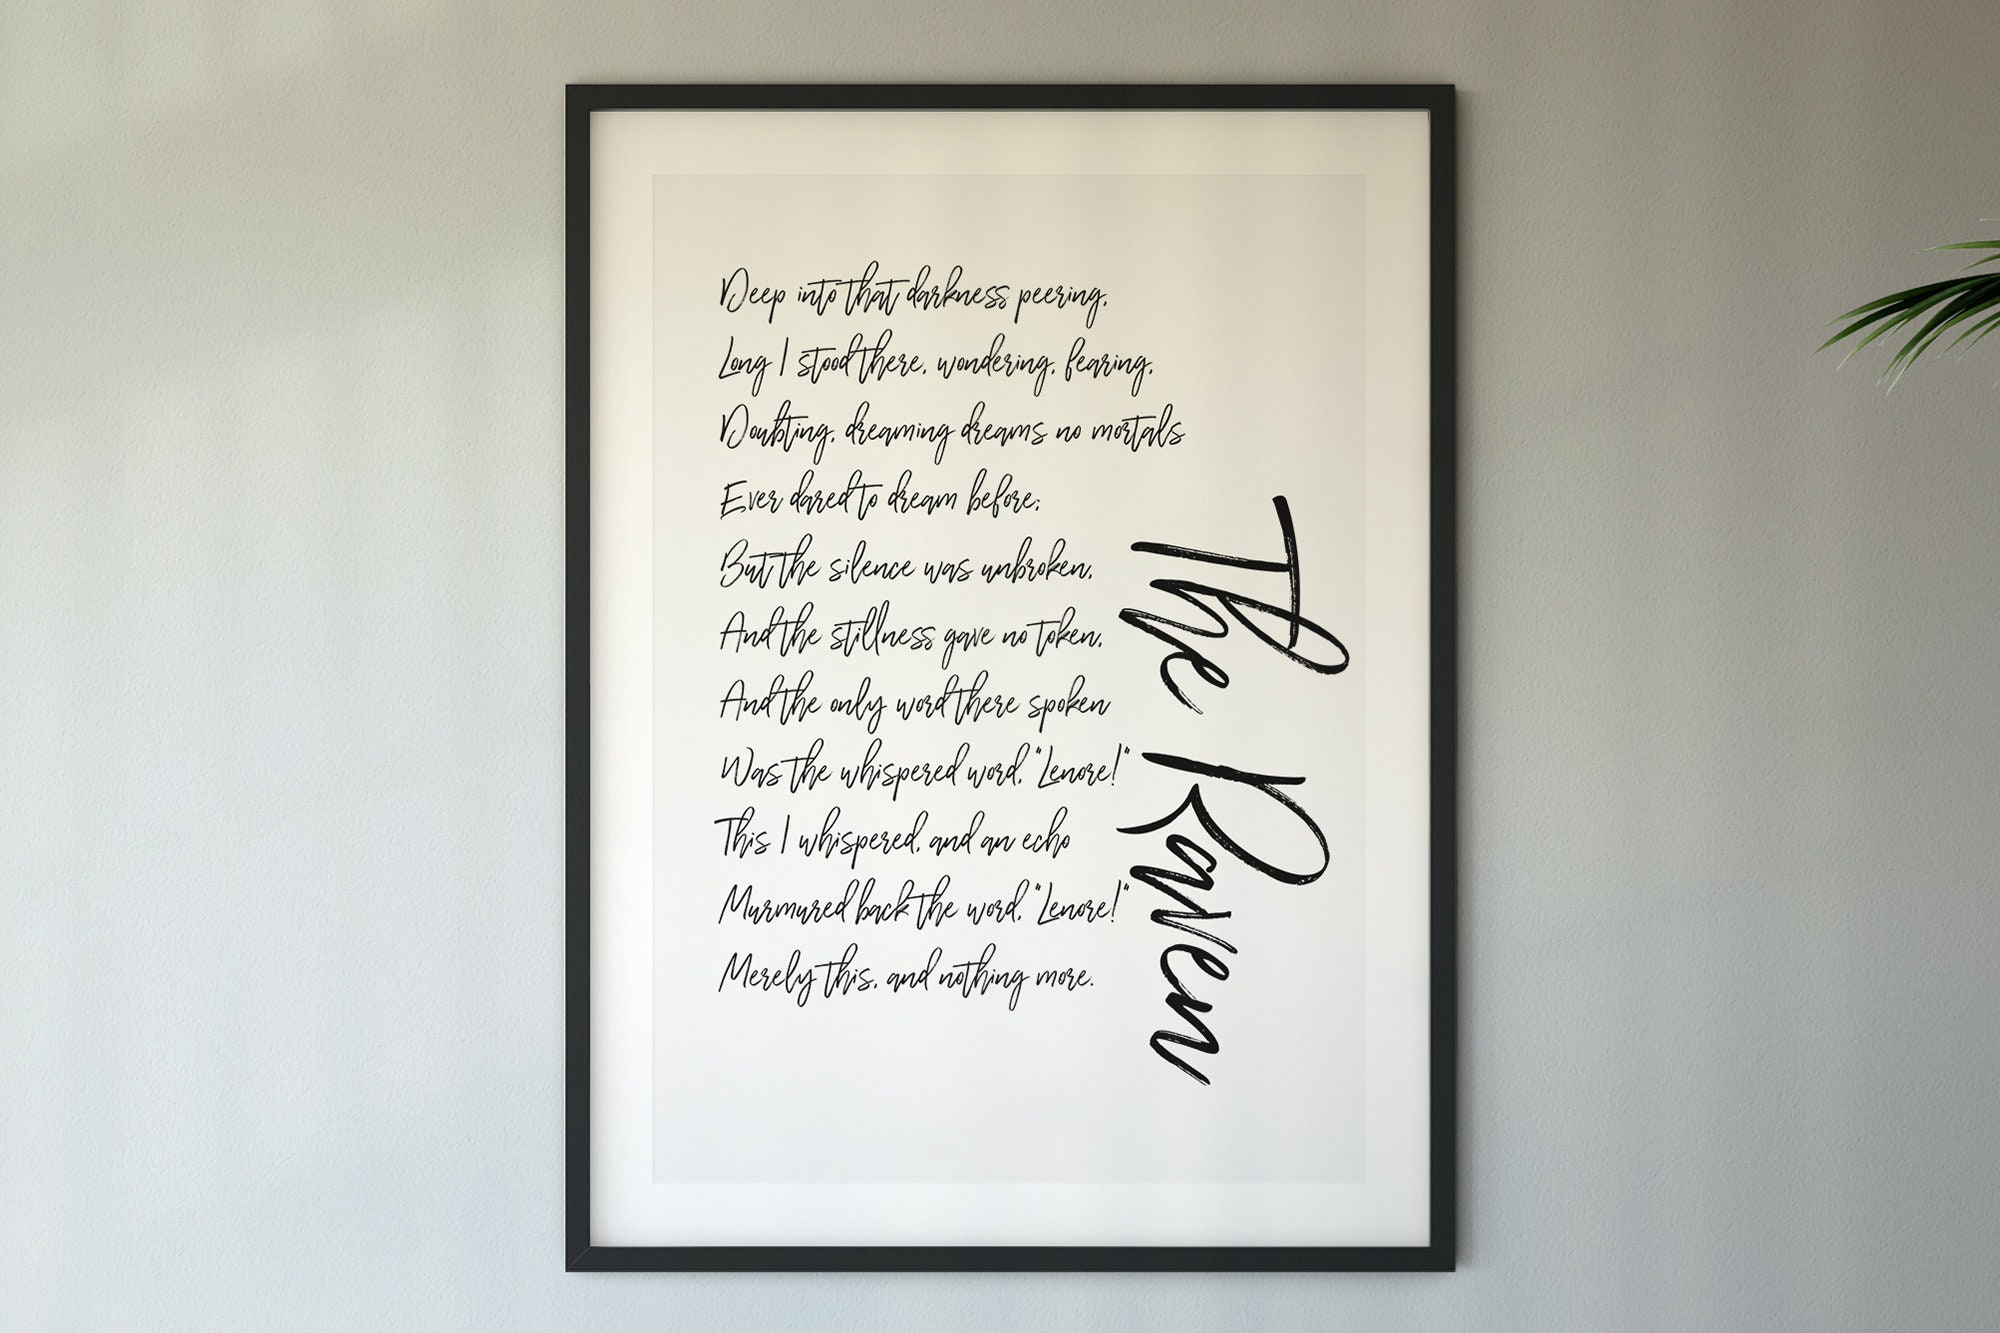 Deep into that darkness peering,
Long I stood there, wondering, fearing,
Doubting, dreaming dreams no mortals
Ever dared to dream before;
But the silence was unbroken,
And the stillness gave no token,
And the only word there spoken
Was the whispered word, "Lenore!"
This I whispered, and an echo
Murmured back the word, "Lenore!"
Merely this, and nothing more.
The Raven